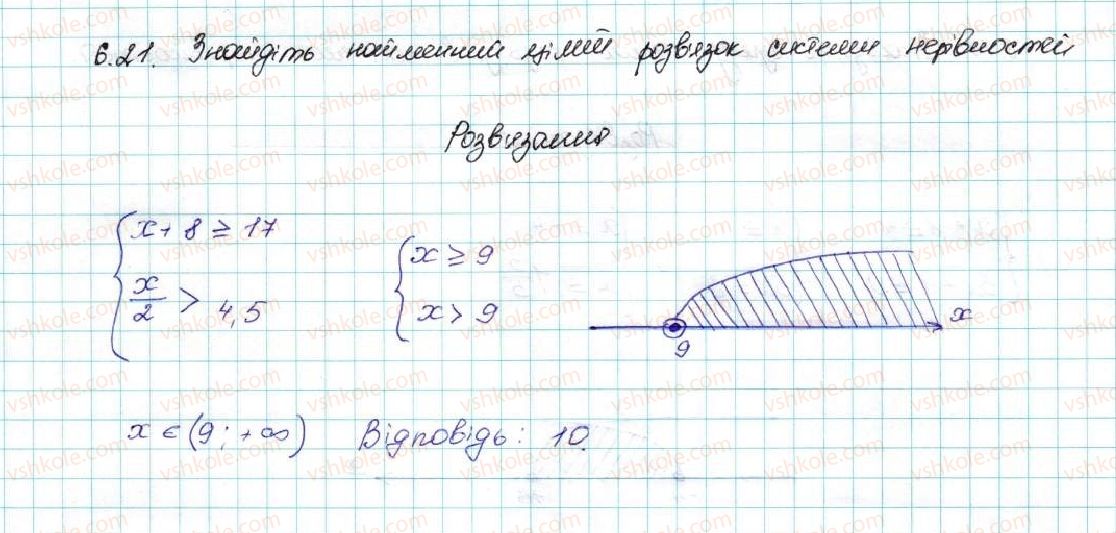 6.21. Знайдіть найменший цілий розв'язок системи нерівностей
Розв'язання
x + 8 ≥ 17
x/2 > 4,5
x ≥ 9
x > 9
9
x
x ∈ (9; +∞) Відповідь: 10.